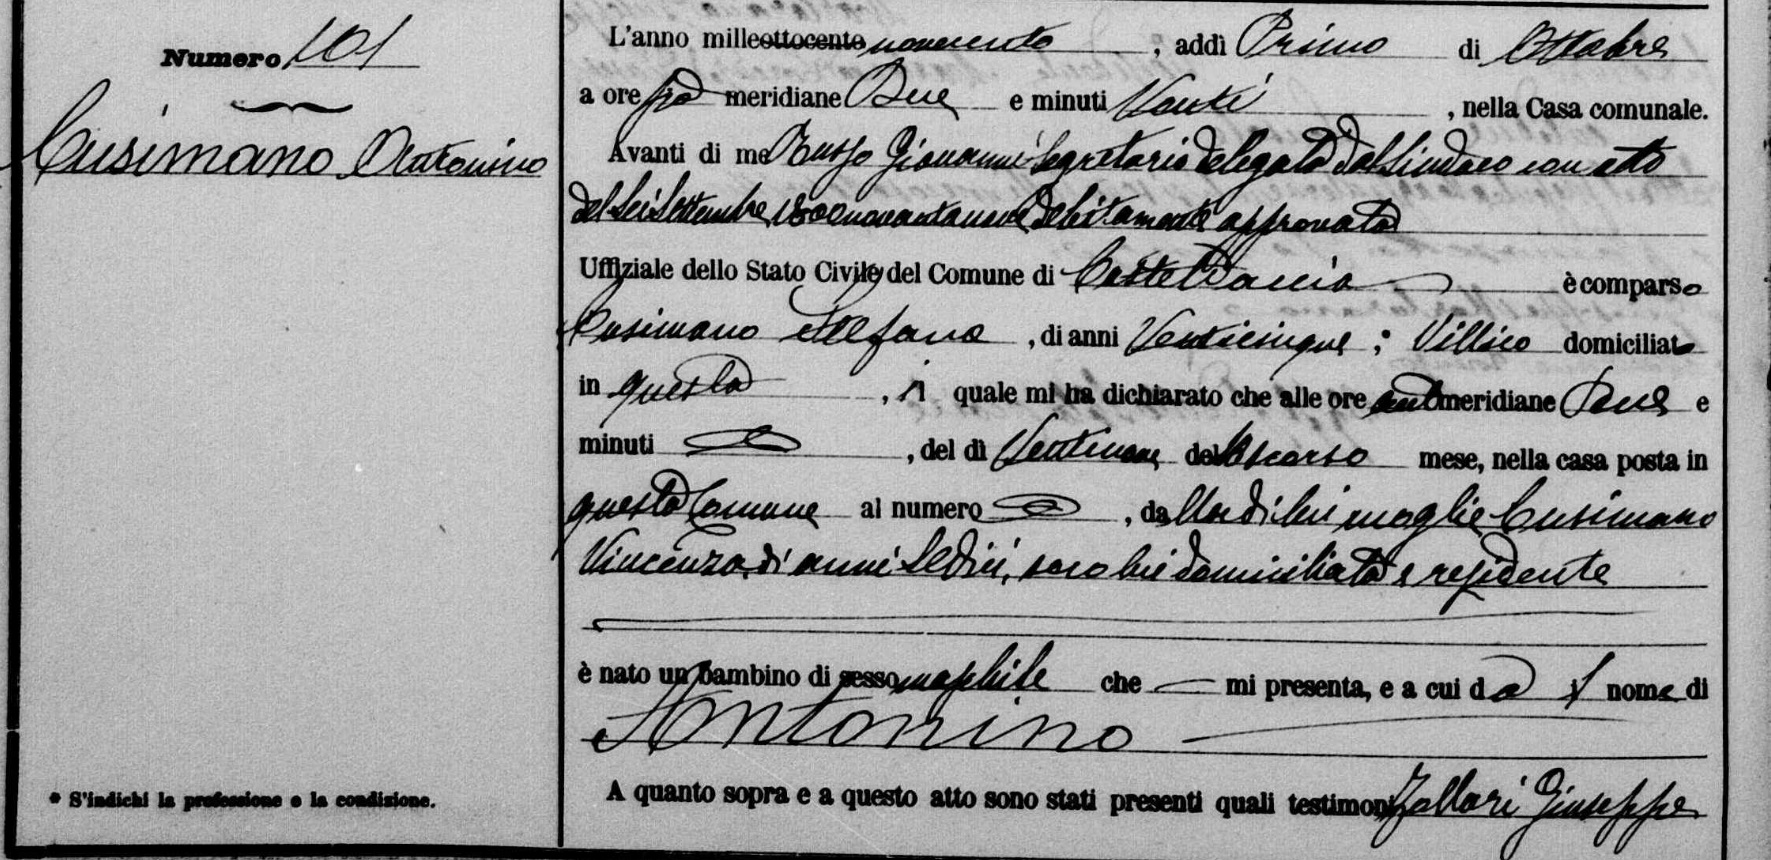 Numero 101
Cusimano Antonino
L'anno milleottocento novecento, addì Primo di Ottobre
a ore po meridiane Due e minuti Venti, nella Casa comunale.
Avanti di me Russo Giovanni Segretario delegato dal Sindaco con atto
del sei Settembre 1800novantanove debitamente approvato
Uffiziale dello Stato Civile del Comune di Casteldaccia è comparso
Cusimano Stefano, di anni Venticinque; Villico domiciliato
in questo, il quale mi ha dichiarato che alle ore antimeridiane Due e
minuti, del dì Ventinove dello scorso mese, nella casa posta in
questo Comune al numero, dalla di lui moglie Cusimano
Vincenza, di anni Sedici, seco lui domiciliata e residente
è nato un bambino di sesso maschile che mi presenta, e a cui dà il nome di
Antonino
A quanto sopra e a questo atto sono stati presenti quali testimoni Giuseppe
* S'indichi la professione o la condizione.